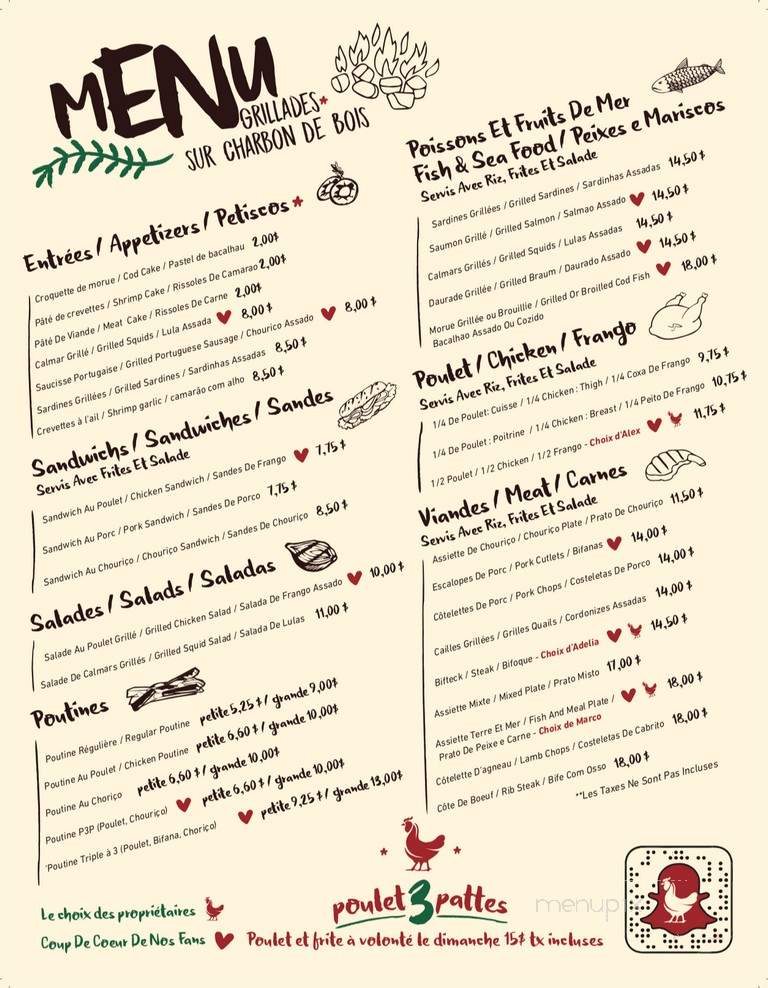 MENU
GRILLADES*
SUR CHARBON DE BOIS
Entrées / Appetizers / Petiscos *
Croquette de morue / Cod Cake / Pastel de bacalhau 2,00$
Pâté de crevettes / Shrimp Cake / Rissoles De Camarao 2,00$
Pâté De Viande / Meat Cake / Rissoles De Carne 2,00$
Calmar Grillé / Grilled Squids / Lula Assada 8,00$
Saucisse Portugaise / Grilled Portuguese Sausage / Chourico Assado 8,00$
Sardines Grillées / Grilled Sardines / Sardinhas Assadas 8,50$
Crevettes à l'ail / Shrimp garlic / camarão com alho 8,50$
Sandwichs / Sandwiches / Sandes
Servis Avec Frites Et Salade
Sandwich Au Poulet / Chicken Sandwich / Sandes De Frango 7,75$
Sandwich Au Porc / Pork Sandwich / Sandes De Porco 7,75$
Sandwich Au Chouriço / Chouriço Sandwich / Sandes De Chouriço 8,50$
Salades / Salads / Saladas
Salade Au Poulet Grillé / Grilled Chicken Salad / Salada De Frango Assado 10,00$
Salade De Calmars Grillés / Grilled Squid Salad / Salada De Lulas 11,00$
Poutines
Poutine Régulière / Regular Poutine petite 5,25$ / grande 9,00$
Poutine Au Poulet / Chicken Poutine petite 6,60$ / grande 10,00$
Poutine Au Choriço petite 6,60$ / grande 10,00$
Poutine P3P (Poulet, Chouriço) petite 6,60$ / grande 10,00$
'Poutine Triple à 3 (Poulet, Bifana, Choriço) petite 9,25$ / grande 13,00$
Poissons Et Fruits De Mer
Fish & Sea Food / Peixes e Mariscos
Servis Avec Riz, Frites Et Salade
Sardines Grillées / Grilled Sardines / Sardinhas Assadas 14,50$
Saumon Grillé / Grilled Salmon / Salmao Assado 14,50$
Calmars Grillés / Grilled Squids / Lulas Assadas 14,50$
Daurade Grillée / Grilled Braum / Daurado Assado 14,50$
Morue Grillée ou Brouillie / Grilled Or Broilled Cod Fish 18,00$
Bacalhao Assado Ou Cozido
Poulet / Chicken / Frango
Servis Avec Riz, Frites Et Salade
1/4 De Poulet: Cuisse / 1/4 Chicken : Thigh / 1/4 Coxa De Frango 9,75$
1/4 De Poulet : Poitrine / 1/4 Chicken : Breast / 1/4 Peito De Frango 10,75$
1/2 Poulet / 1/2 Chicken / 1/2 Frango - Choix d'Alex 11,75$
Viandes / Meat / Carnes
Servis Avec Riz, Frites Et Salade
Assiette De Chouriço / Chouriço Plate / Prato De Chouriço 11,50$
Escalopes De Porc / Pork Cutlets / Bifanas 14,00$
Côtelettes De Porc / Pork Chops / Costeletas De Porco 14,00$
Cailles Grillées / Grilles Quails / Cordonizes Assadas 14,00$
Bifteck / Steak / Bifoque - Choix d'Adelia 14,50$
Assiette Mixte / Mixed Plate / Prato Misto 17,00$
Assiette Terre Et Mer / Fish And Meal Plate / 18,00$
Prato De Peixe e Carne - Choix de Marco
Côtelette D'agneau / Lamb Chops / Costeletas De Cabrito 18,00$
Côte De Boeuf / Rib Steak / Bife Com Osso 18,00$
**Les Taxes Ne Sont Pas Incluses
poulet 3 pattes
Le choix des propriétaires
Coup De Coeur De Nos Fans
Poulet et frite à volonté le dimanche 15$ tx incluses